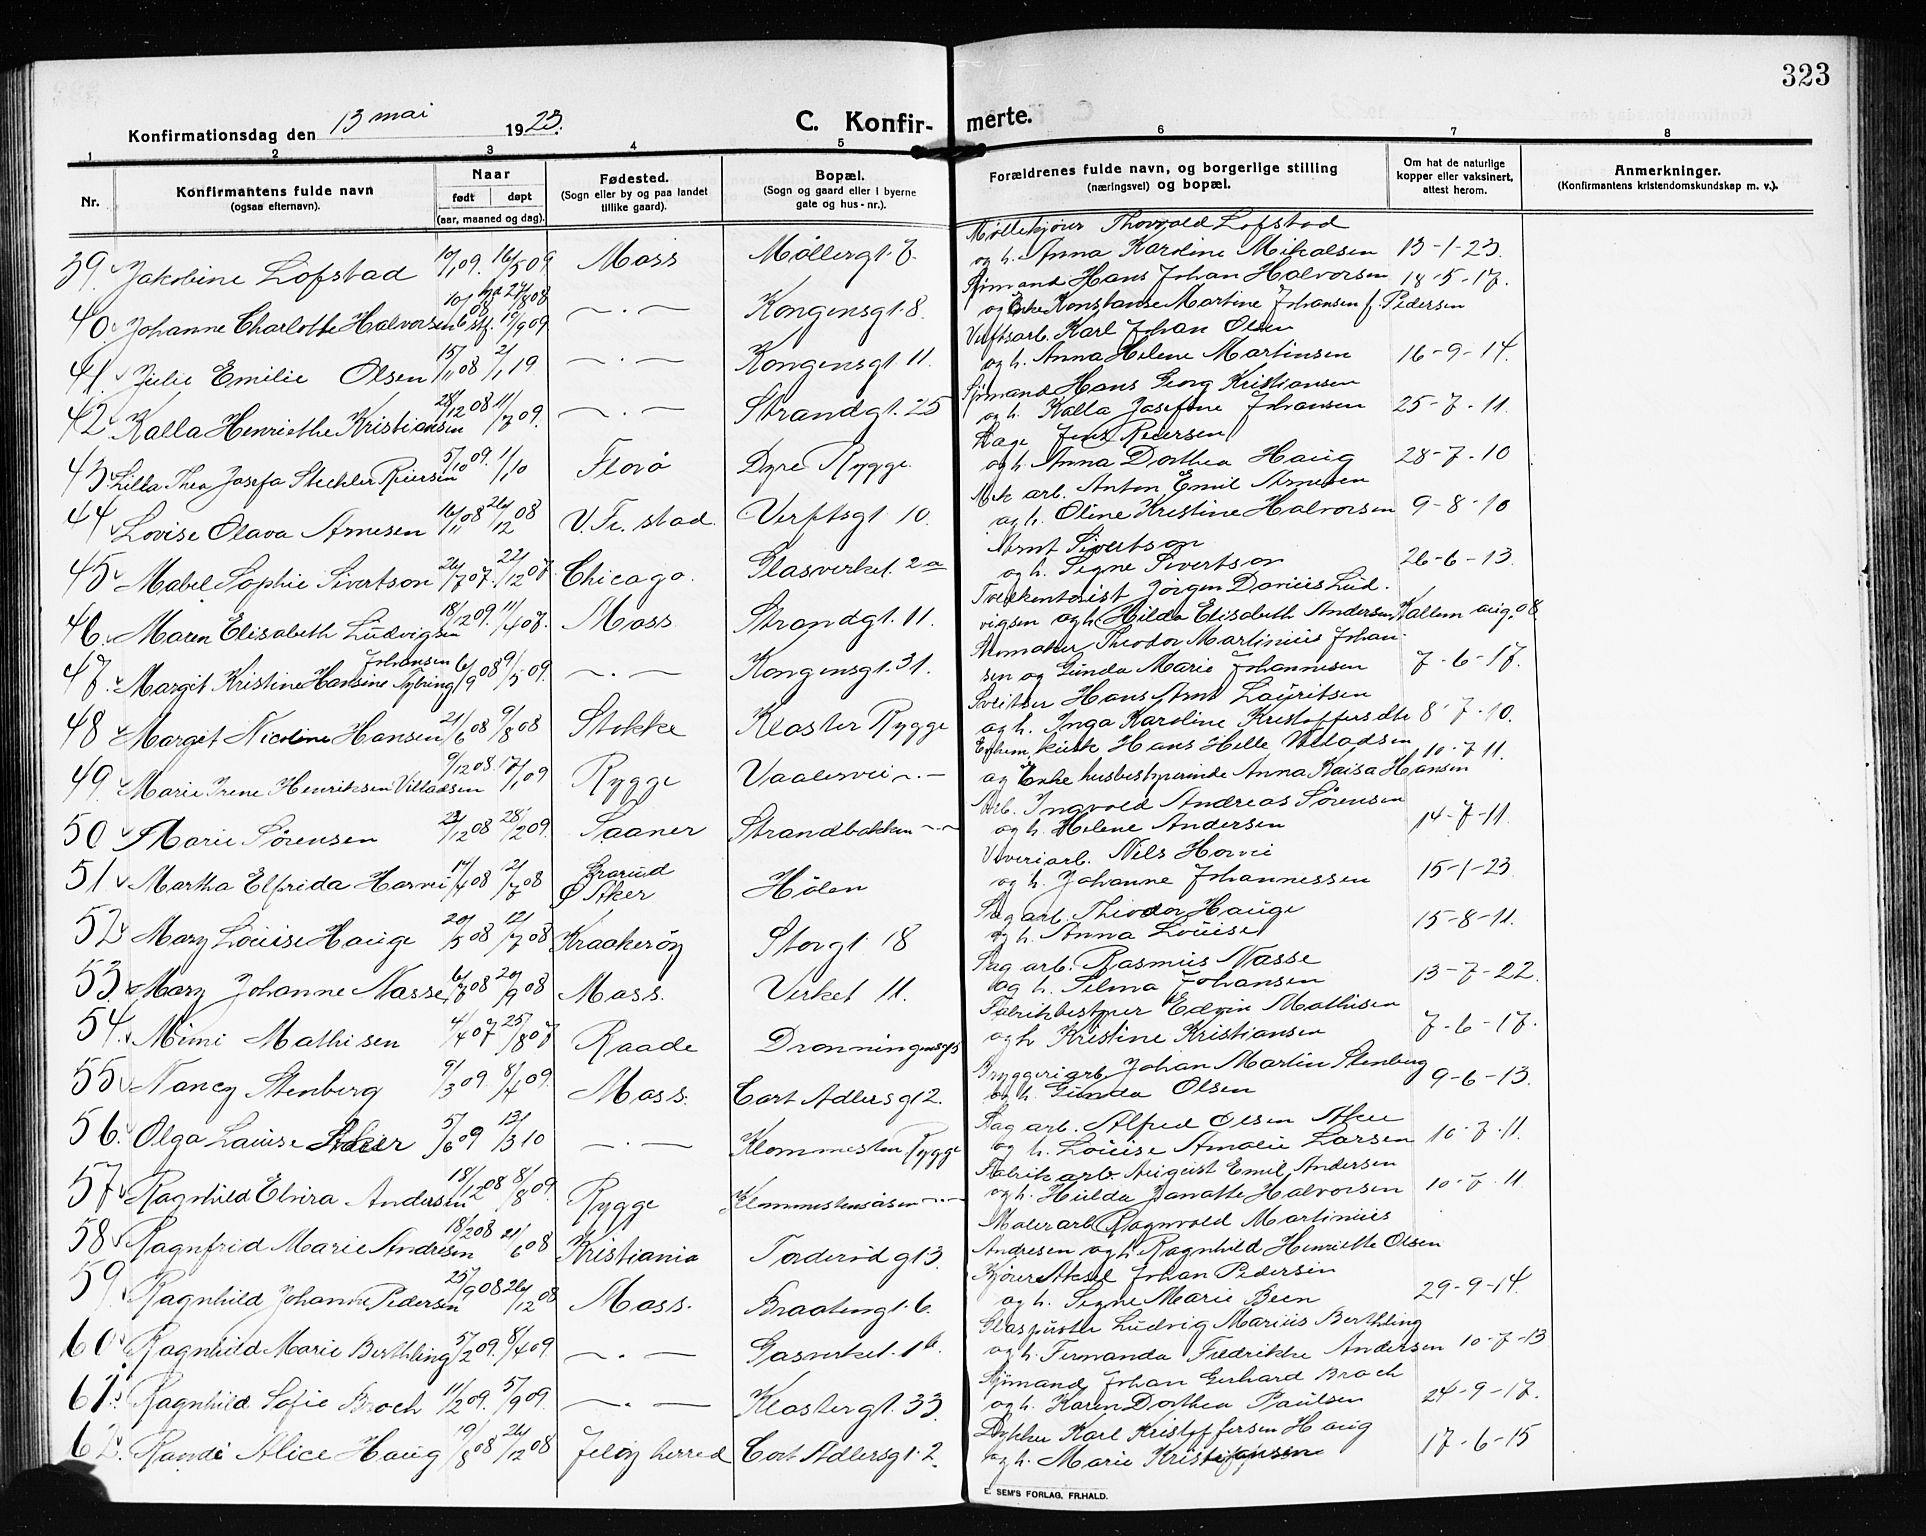 323
Konfirmationsdag den 13 mai 1923.
C. Konfir- merte.
1 2 3 4 5 6 7 8
Nr. Konfirmantens fulde navn (ogsaa efternavn). Naar født døpt (aar, maaned og dag). Fødested. (Sogn eller by og paa landet tillike gaard). Bopæl. (Sogn og gaard eller i byerne gate og hus-nr.). Forældrenes fulde navn, og borgerlige stilling (næringsvei) og bopæl. Om hat de naturlige kopper eller vaksinert, attest herom. Anmerkninger. (Konfirmantens kristendomskundskap m. v.).
39. Jakobine Lofstad 10/1 09. 16/5 09 Moss Møllergt. 7. Møllekjører Thorvald Lofstad
og h. Anna Karoline Mikalsen 13-1-23.
40. Johanne Charlotte Halvorsen Kongensgt. 8. Sjømand Hans Johan Halvorsen 18-5-17.
og Enke Konstanse Martine Johansen f. Pedersen
41. Julie Emilie Olsen 15/1 08 2/1 19 Kongensgt. 11. Verftsarb. Karl Johan Olsen
og h. Anna Helene Martinsen 16-9-14.
42 Kalla Henriette Kristiansen 28/12 08 11/7 09. Strandgt. 25 Sjømand Hans Georg Kristiansen
og h. Kalla Josefine Johansen 25-7-11.
43. Lilla Thea Josefa Stechler Reiersen 5/10 09. 1/1 10 Florø Dyre Rygge. Jens Reiersen
og h. Anna Dorthea Haug 28-7-10
44 Lovise Olava Arnesen 16/11 08 26/12 08 V. Fr. stad. Verftsgt. 10. Mek arb. Anton Emil Arnesen
og h. Oline Kristine Halvorsen 9-8-10
45 Mabel Sophie Sivertson 24/7 07. 22/12 07. Chicago. Glasverket. 2a Arnt Sivertson
og h. Signe Sivertson 26-6-13.
46. Maren Elisabeth Ludvigsen 18/2 09. 11/4 08. Moss Strandgt. 11. Jørgen Darius Lud-
vigsen og h. Hilda Elisabeth Andersen Kallum aug. 08
47. Margit Kristine Hansine Johansen 6/9 08 9/5 09. Kongensgt. 31. Theodor Martinius Johan-
sen og Gunda Marie Johannesen 7-6-17.
48 Margit Nicoline Hansen 21/6 08 9/8 08 Stokke Kloster Rygge Sveitser Hans Arnt Lauritsen
og h. Inga Karoline Kristoffersdtr 8-7-10.
49. Marie Irene Henriksen Villadsen 9/12 08. 17/1 09 Rygge Vaalervei Hans Helle Villadsen
og Enke husbestyrerinde Anna Kaisa Hansen 10-7 11.
50 Marie Sørensen 23/12 08 28/2 09. Saaner Strandbakken Arb. Ingvold Andreas Sørensen
og h. Helene Andersen 14-7-11.
51 Martha Elfrida Horvei 17/4 08 2/7 08 Grorud Ø Aker Hølen Væveriarb. Nils Horvei
og h. Johanne Johannessen 15-1-23.
52 Mary Louise Hauge 20/5 08 12/7 08 Kraakerøy Storgt. 18 Sag arb. Theodor Hauge
og h. Anna Louise 15-8-11.
53. Mary Johanne Nasse 6/7 08 20/9 08 Moss. Verket 11. Sag arb. Rasmus Nasse
og h. Selma Johansen 13-7-22.
54. Mimi Mathisen 4/4 07 25/8 07 Raade Dronningensgt 5 Fabrikbestyrer Edvin Mathisen
og h Kristine Kristiansen 7-6-17.
55 Nancy Stenberg 9/3 09. 8/4 09. Moss. Cort Adlersgt 2. Bryggeriarb Johan Martin Stenberg
og h. Gunda Olsen 9-6-13.
56. Olga Lauise Aker 5/6 09 13/3 10 Klommesten Rygge Sag arb. Alfred Olsen Aker
og h. Louise Amalie Larsen 10-7-11.
57 Ragnhild Elvira Andersen 18/12 08 8/8 09. Rygge Klommestensåsen Fabrik arb. August Emil Andersen
og h. Hulda Janatte Halvorsen 10-7-11
58 Ragnfrid Marie Andresen 18/2 08 21/6 08 Kristiania Tordenskj g 3. Malerarb Ragnvald Martinius
Andresen og h. Ragnhild Henriette Olsen
59. Ragnhild Johanne Pedersen 25/9 08 26/12 08 Moss. Braatengt. 6. Kjører Aksel Johan Pedersen
og h. Signe Marie Been 29-9-14.
60 Ragnhild Marie Berthling 5/2 09. 8/4 09. Gasverket. 1b. Glaspuster Ludvig Marius Berthling
og h. Fernanda Fredrikke Andersen 10-7-13
61. Ragnhild Sofie Broch 11/2 09. 5/9 09. Klostergt. 33. Sjømand Johan Gerhard Broch
og h. Karen Dorthea Paulsen 24-9-17.
62. Randi Alice Haug 19/8 08 26/12 08 Jeløy herred Cort Adlersgt. 2. Dykker Karl Kristoffersen Haug
og h. Marie Kristiansen 17-6-15
E. SEM'S FORLAG, FR.HALD.